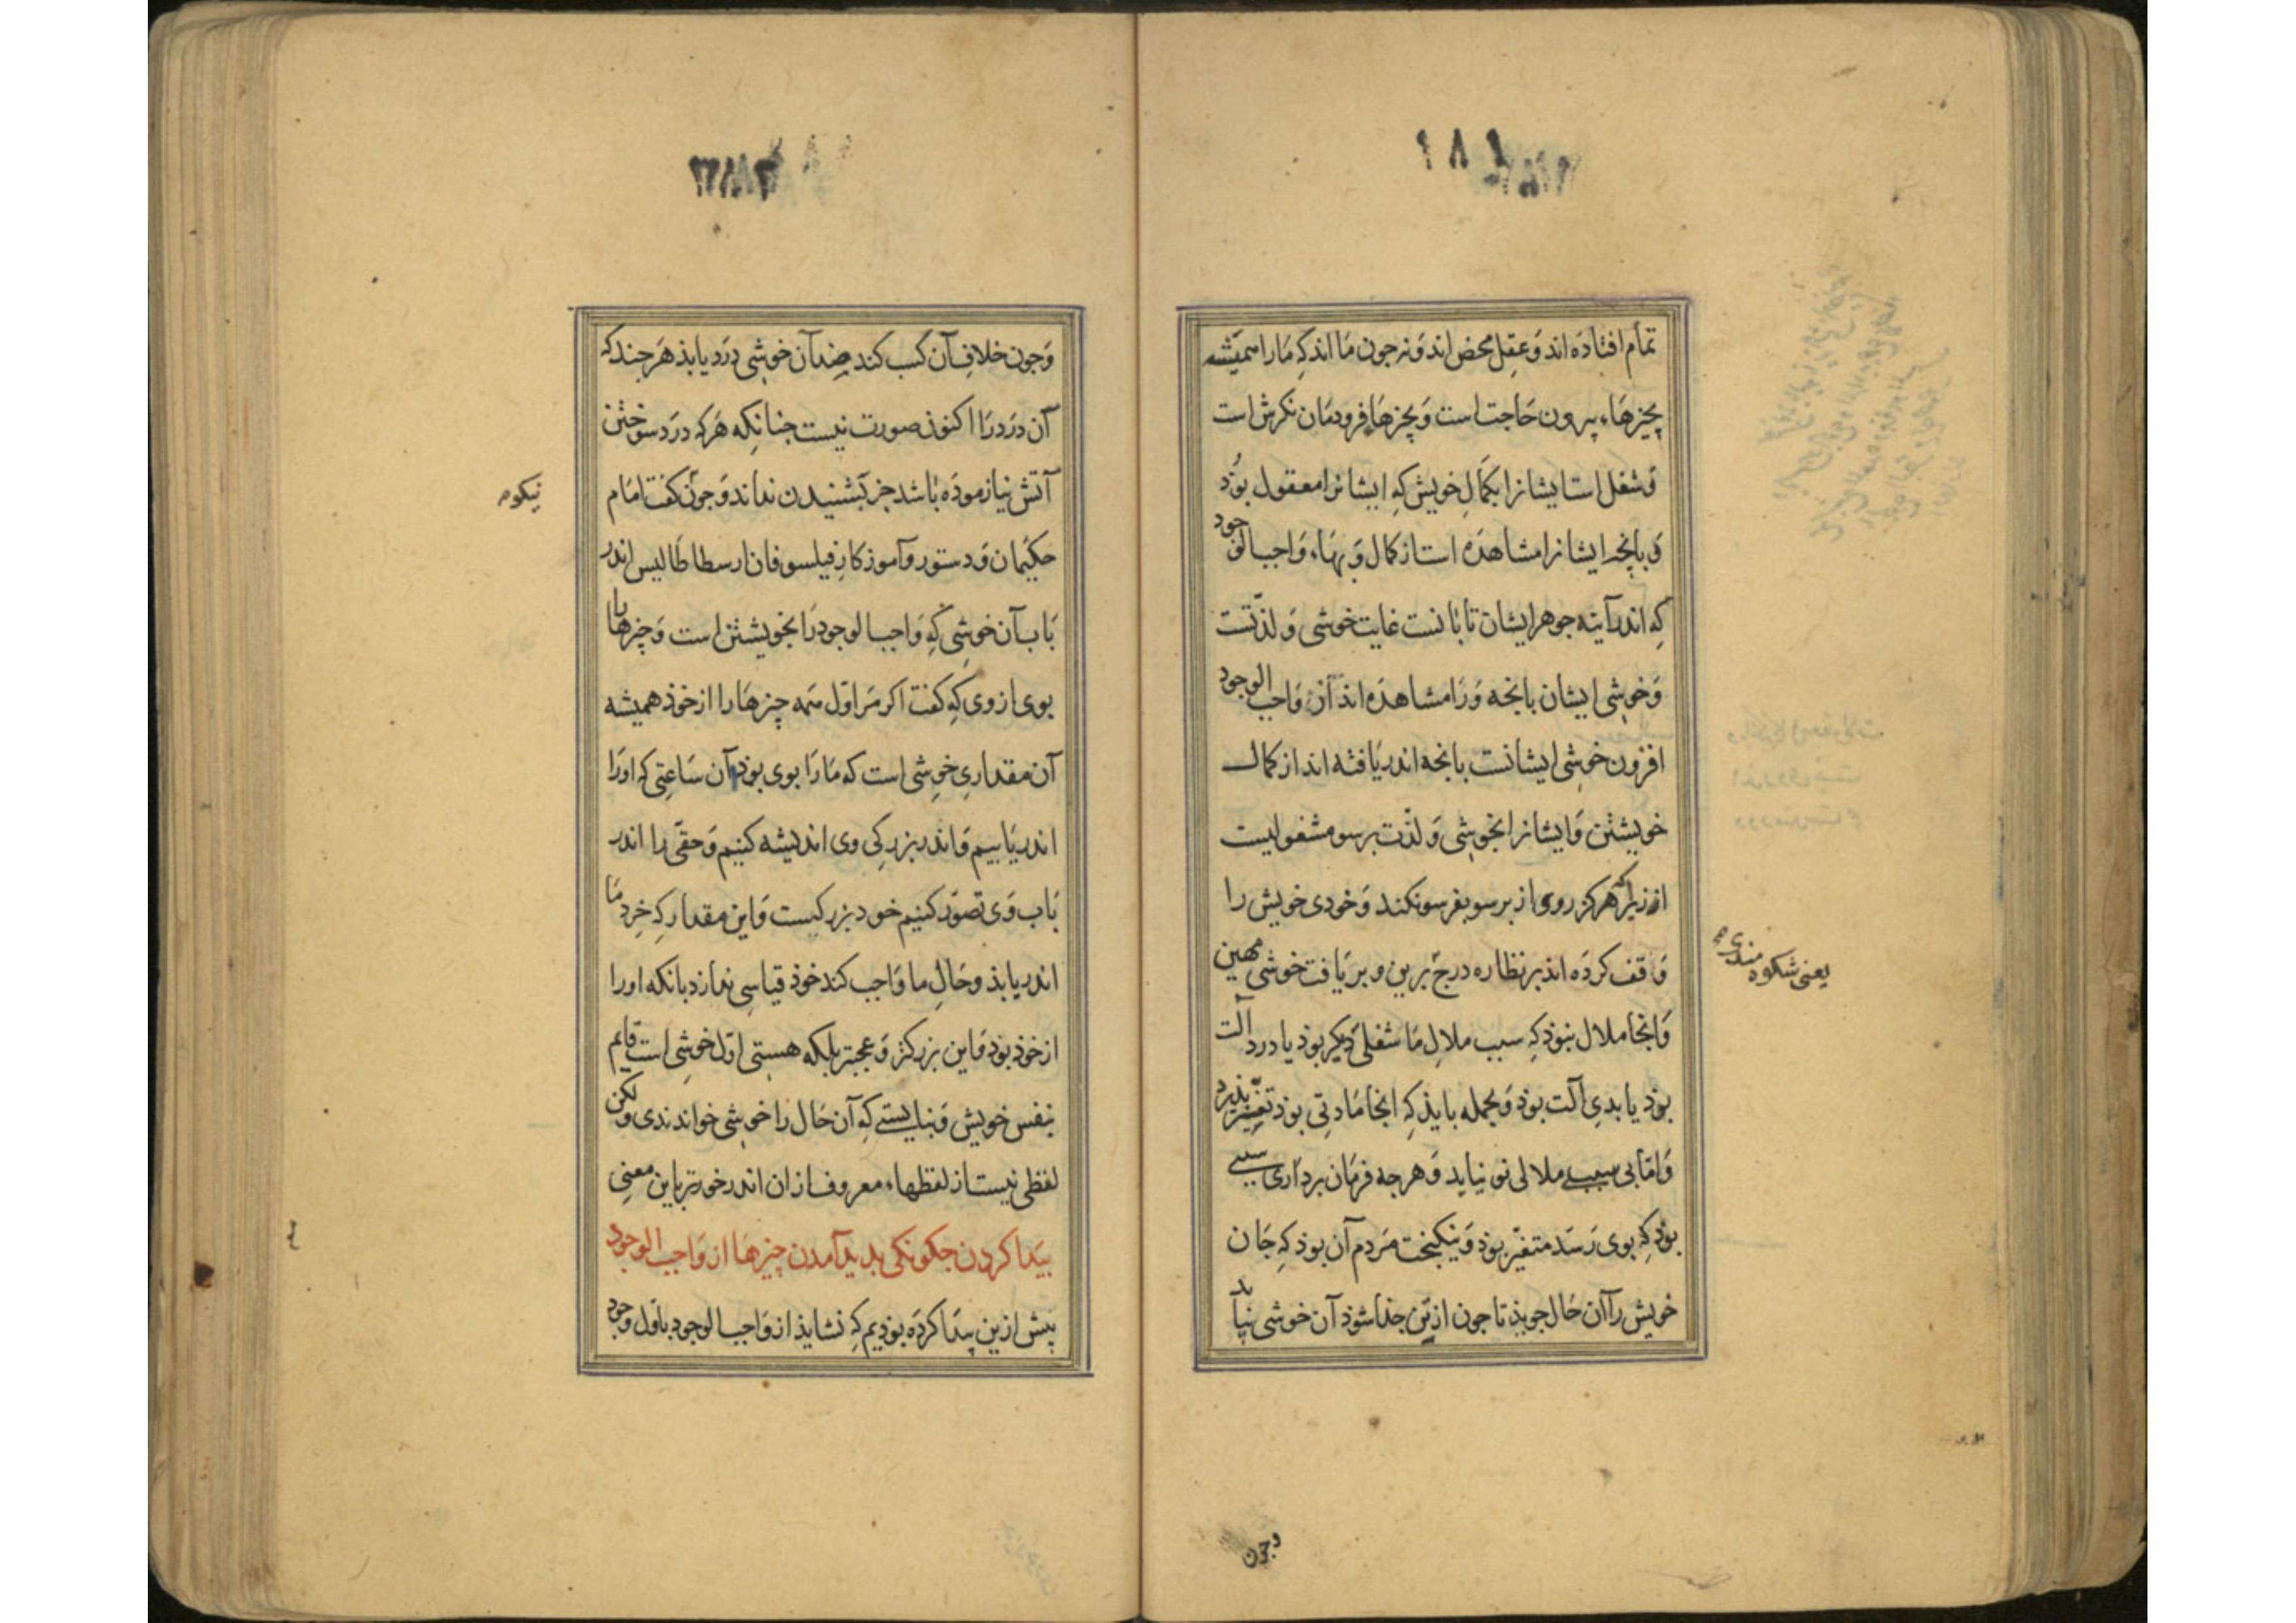 تمام افتاده‌اند وَ عقل محض‌اند وَ نه جون مَا اند کِه مَا را همیشه
بچیزهَاء بیرون حَاجت است وَ بچیزهَا فرودمَان نکرش است
وَ شغل استایشانرا بکمَالِ خویش کِه ایشانرا معقول بوُذ
وَ بآنجه ایشانرا مشاهدَه است از کمال وَ بهَاء وَاجب الوجود
کِه اندر آینه جوهر ایشان تابَانست غایت خوشی وَ لذّتست
وَ خوشی ایشان بانجه وَرَا مشاهدَه اند از وَاجب الوجود
افزون خوشی ایشانست بانجه اندر یَافته اند از کمال
خویشتن وَ ایشانرا بخوشی وَ لذّت برسو مشغولیست
ازیراکه هرکز روی از برسو بفرسو نکند وَ خودی خویش را
وَاقف کردَه اند بر نظاره درج برین و بر یَافت خوشی مهین
یعنی شکوه مندی
وَ انجا ملال نبوَذ کِه سبب ملالِ مَا شغلی دیکر بوذ یا درد آلت
بوذ یا بدیِ آلت بوذ وَ بجمله بایذ کِه انجا مَادتی بوذ تغیّر پذیرد
وَ امّا بی سببی ملالی نو نیاید وَ هرجه فرمَان بردَاری سببی
بوَذ کِه بوی رَسَد متغیّر بوذ وَ نیکبخت مَردم آن بوذ کِه جَان
خویش را آن حَال جویذ تا جون از تن جذا شوذ آن خوشی بیابد
وجون
وَ جون خلافِ آن کسب کند ضد آن خوشی دَرد یابذ هَر جند که
آن دَرد رَا اکنون صورت نیست جنانکِه هَرکه درد سوختن
آتش نیازموذَه بَاشد جز بشنیدن نداند وَ جوّن کفت امَام
نیکو
حکیمان وَ دستور وَ آموزکارِ فیلسوفان ارسطاطَالیس اندر
بَاب آن خوشی کِه وَاجب الوجود رَا بخویشتن است وَ چیزها را
بوی از وی کِه کفت اکر مَر اوّل همَه چیزهَا را از خوذ همیشه
آن مقداریِ خوِشی است که مَا رَا بوی بوذ آن سَاعتی که اورَا
اندر یَابیم وَ اندر بزرکی وی اندیشه کنیم وَ حقّی را اندر
بَاب وَی تصوّر کنیم خود بزرکیست وَ این مقدار کِه خِرد مَا
اندر یابذ وَ حَالِ ما وَاجب کند خوذ قیاسی ندَارد بانکه اورا
از خوذ بوَذ وَ این بزرکتر وَ عجبتر بلکه هستی اوّل خوشی است قایم
بنفس خویش وَ نبایستی کِه آن حَال را خوشی خواندندی وَ لکن
لفظی نیست از لفظهاء معروف از ان اندر خورتر باین معنی
پیَدا کردن جکونکی بدید آمدن چیزهَا از وَاجب الوجود
پیش ازین پیدَا کردَه بوذیم کِه نشایذ از وَاجب الوجود باوّل وجود